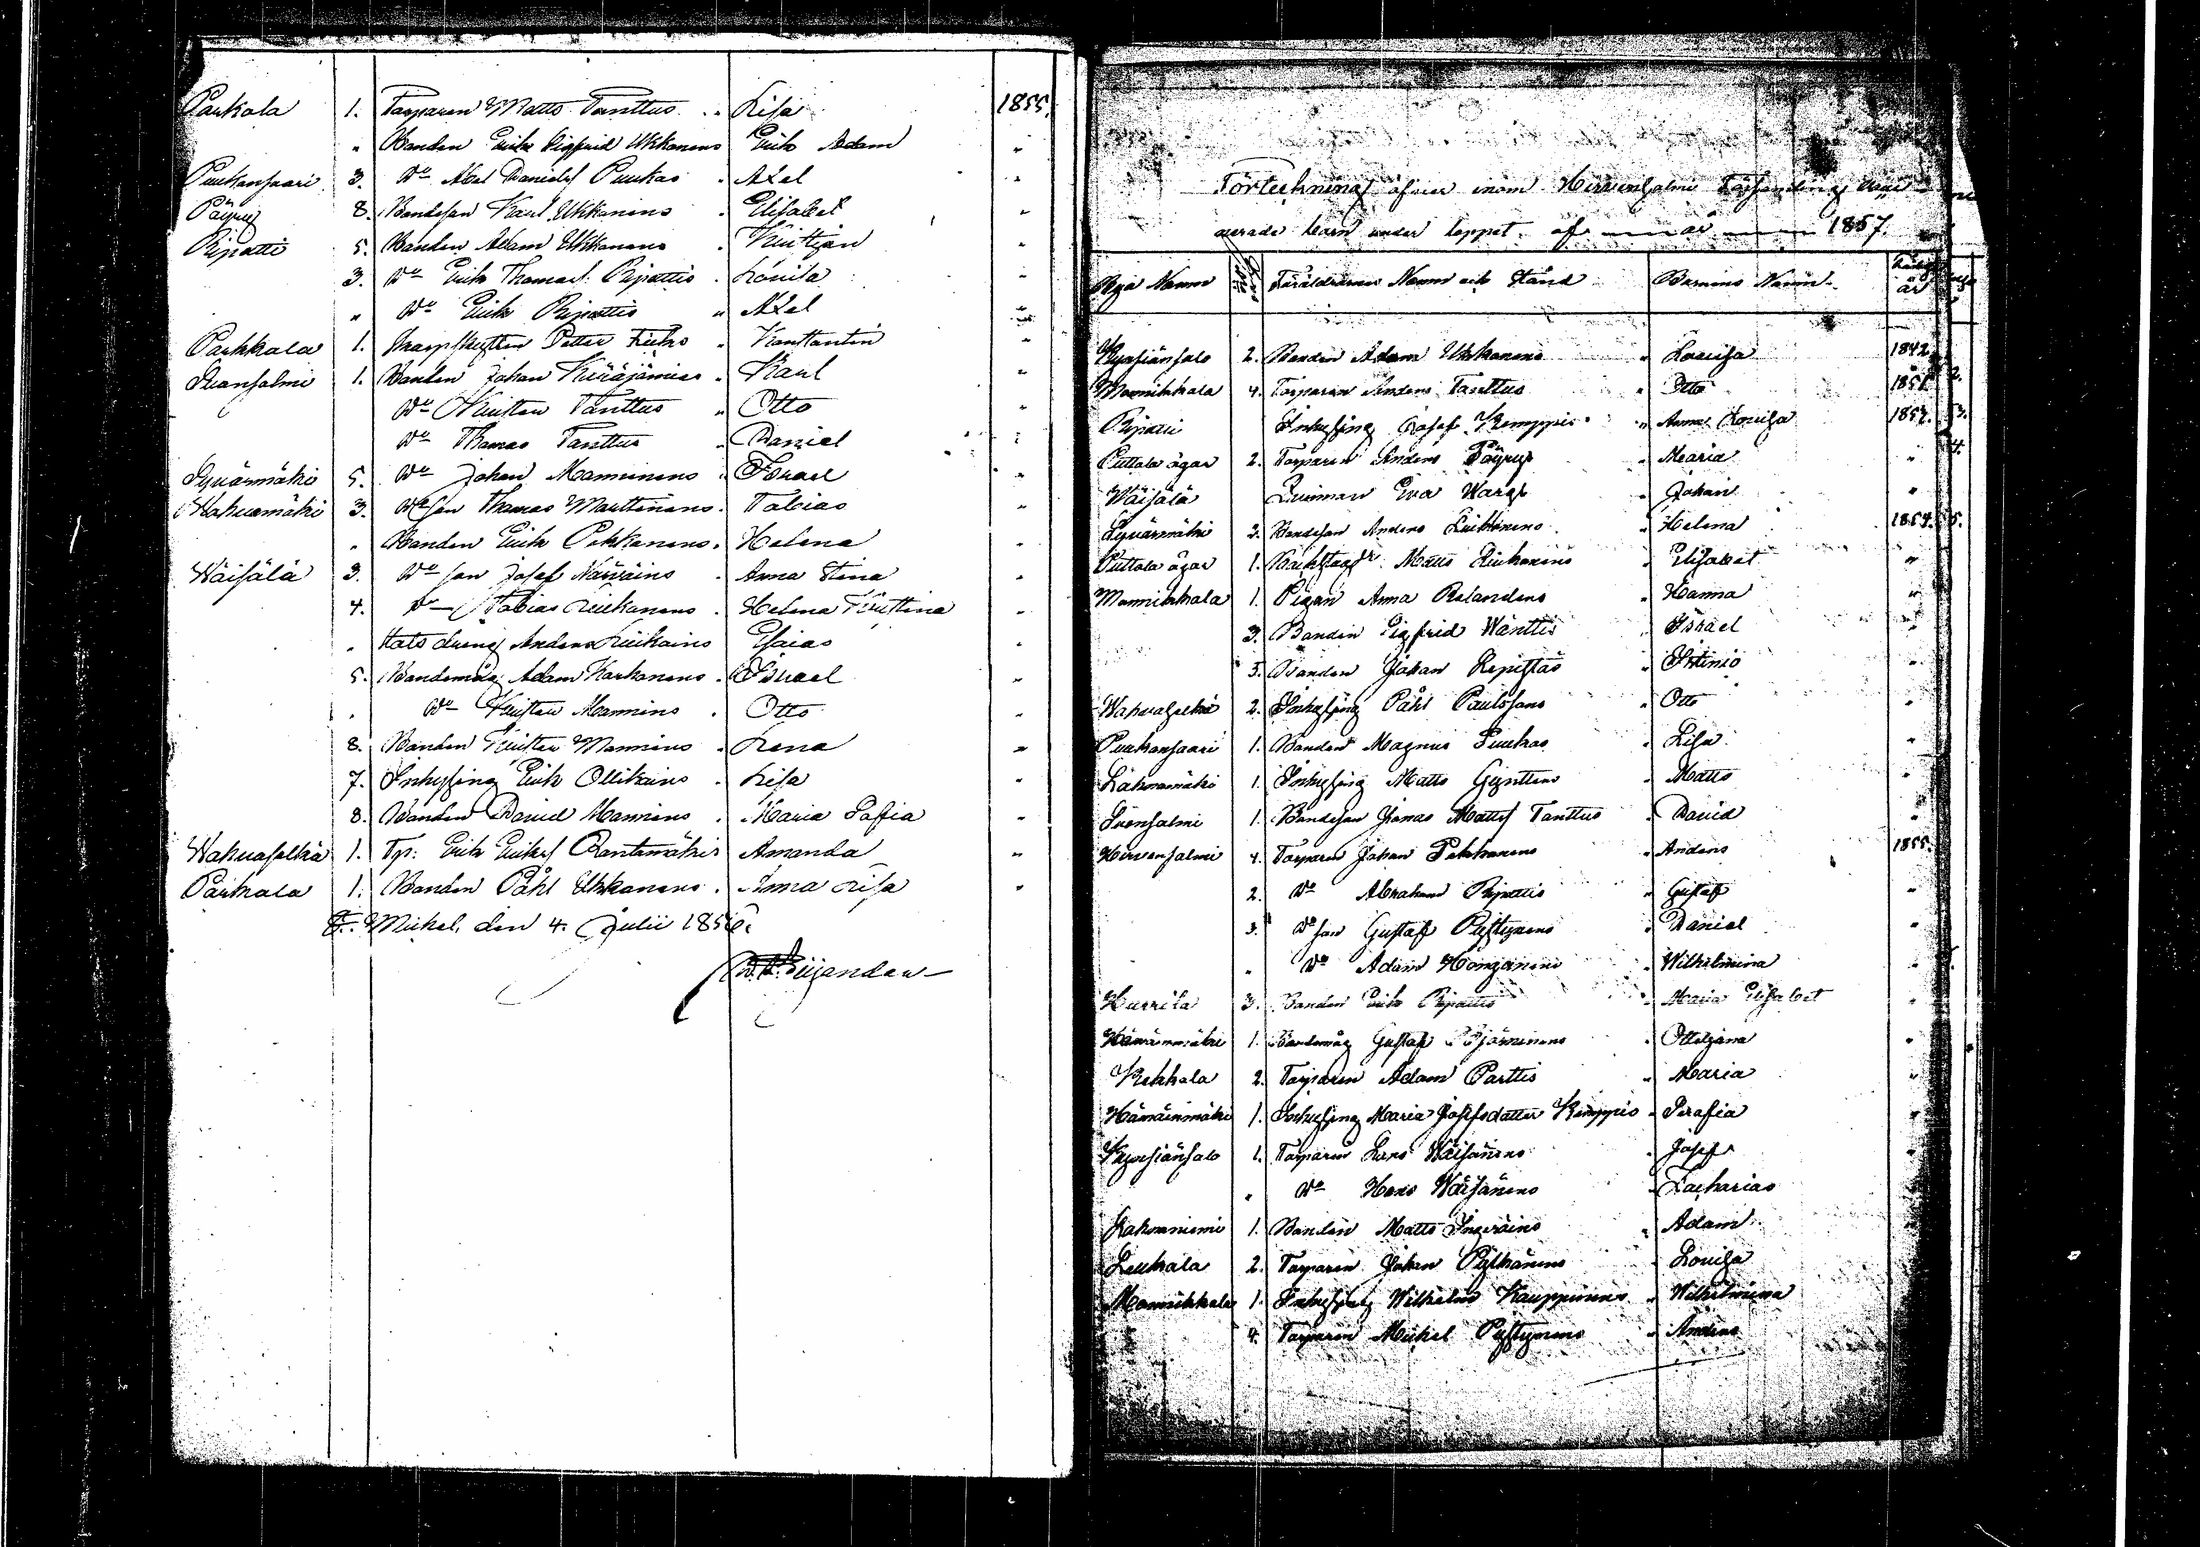 Parkala 1. Torparen Matts Tanttus " Lisa 1855.
" Bonden Erik Sigfrid Ukkonens Erik Adam "
Puukonsaari 3. Do Abel Danielss. Puukas " Axel "
Päyry 8. Bondeson Karl Ukkonens " Elisabet "
Ripatti 5. Bonden Adam Ukkonens " Kristjan "
3. Do Erik Thomass. Ripattis " Lovisa "
" Do Erik Ripattis " Axel "
Parkkala 1. Skarpskytten Petter " Konstantin "
Suonsalmi 1. Bonden Johan " Karl "
Do Kristian Tanttus " Otto "
Do Thomas Tanttus " Daniel "
Syvärmäki 5. Do Johan Manninens " Israel "
Hakuamäki 3. Do son Thomas Marttinens " Tobias "
" Bonden Erik Pekkanens " Helena "
Wäisälä 3. Do son Josef Närväins " Anna Stina "
4. Do Tobias Liukonens " Helena Kristina "
" Stats dreng Anders Liukoins Esaias "
5. Bondemåg Adam Korhonens " Israel "
" Do Kristian Mannins " Otto "
8. Bonden Krister Mannins " Lena "
7. Inhysing Erik Ollikains " Lisa "
8. Bonden David Mannins " Maria Sofia "
Wahvaselkä 1. Tp: Erik Erikss. Rantamäkis Amanda "
Parkala 1. Bonden Påhl Ukkonens " Anna Lisa "
S:t Mickel, den 4. Julii 1856.
Förteckning öfver inom Hirvensalmi Församling
nerade barn under loppet af år 1857.
Bya Namn Föräldrarnes Namn och Stånd Barnens Namn år
Kyösiänsalo 2. Bonden Adam Ukkonens " Lovisa 1842.
Monnikkala 4. Torparen Anders Tanttus " Otto 1851. 2.
Ripatti Inhysing Josef Kemppis " Anna Lovisa 1853. 3.
Puttola ägor 2. Torparen Anders Päyrys " Maria " 4.
Wäisälä Qvinnan Eva Wargs " Johan "
Syvärmäki 3. Bondeson Anders Liukkonens " Helena 1854. 5.
Puttola ägor 1. Matts Liukonens " Elisabet "
Monnikkala 1. Pigan Anna Relanders " Hanna "
3. Bonden Sigfrid Wänttis " Israel "
3. Bonden Johan "
Wahvaselkä 2. Inhysing Påhl Paulssons " Otto "
Puukonsaari 1. Bonden Magnus Puukas " Lisa "
Lähomäki 1. Inhysing Matts " Matts "
Suonsalmi 1. Bondeson Jonas Matts Tanttus " David "
Hirvensalmi 4. Torparen Johan Pekkanens " Anders 1855.
2. Do Abraham Ripattis " Gustaf "
3. Do son Gustaf Pystynens " Daniel "
" Do Adam Hongonens " Wilhelmina "
Hurrila 3. Bonden Erik Ripattis " Maria Elisabet "
Hämäinmäki 1. Bondemåg Gustaf Björninens " Ottiljana "
Kekkola 2. Torparen Adam Parttis " Maria "
Hämäinmäki 1. Inhysing Maria Josefsdotter Kemppis " Serafia "
Kyösiänsalo 1. Torparen Lars Wäisänens " Josef "
" Do Hans Wäisänens " Zacharias "
Hokoaniemi 1. Bonden Matts " Adam "
Leukala 2. Torparen Johan Pylkänens " Lovisa
Monnikkala 1. Inhysing Wilhelm Kauppinens " Wilhelmina
4. Torparen Mickel Pystynens " Anders